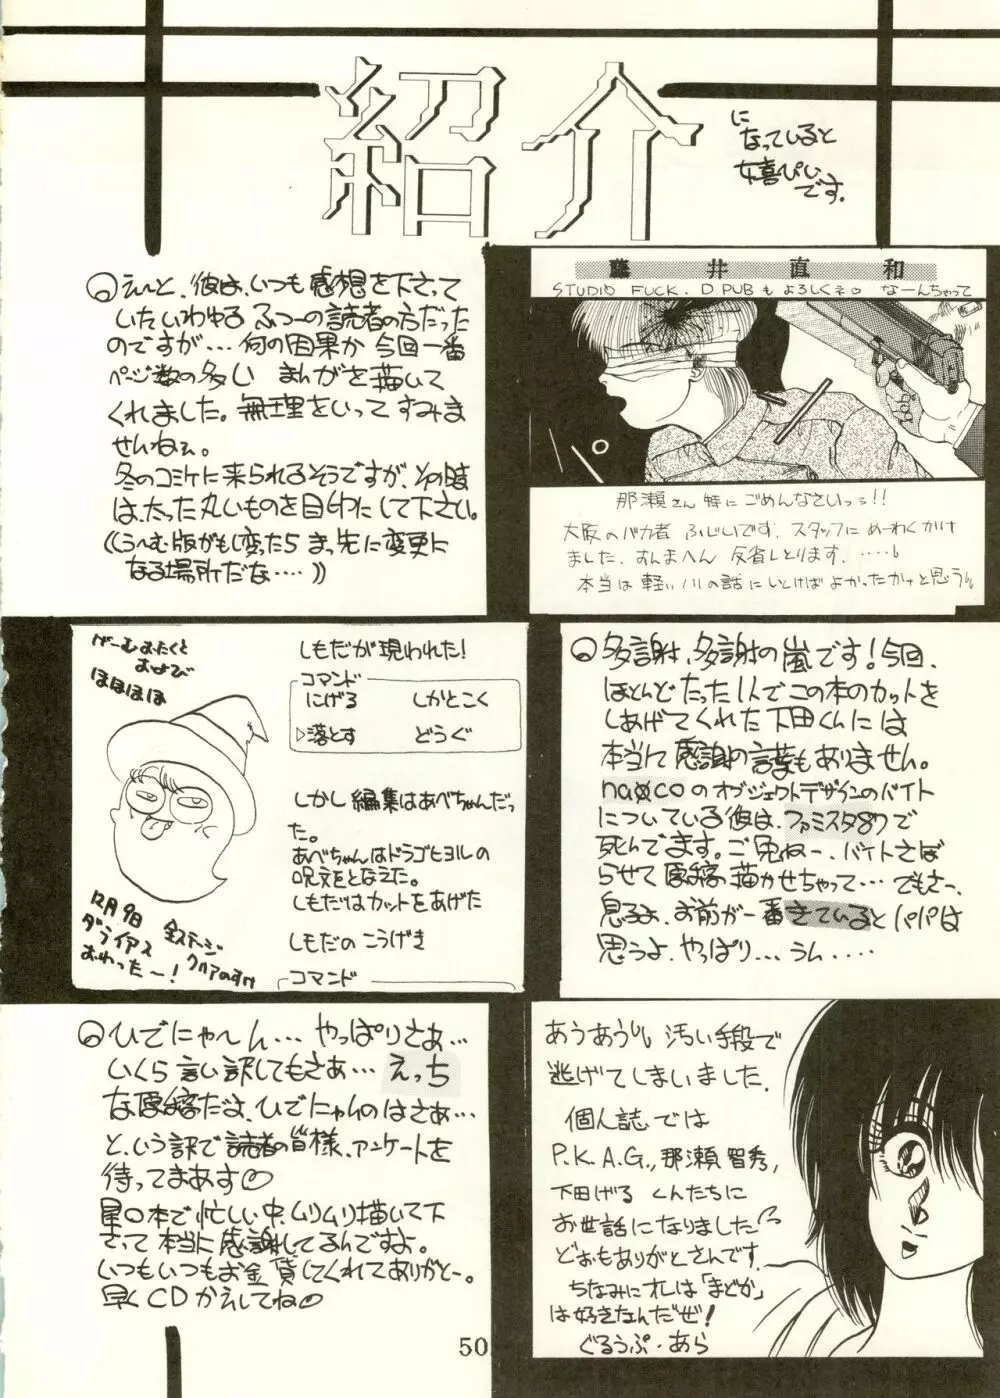 紹介
に
なっていると
嬉ぴい
です。
えーと、彼は、いつも感想を下さって
いたいわゆる ふつーの読者の方だった
のですが…何の因果か今回一番
ページ数の多い まんがを描いて
くれました。無理をいって すみま
せんねェ。
冬のコミケに来られるそうですが、その時
は、たった丸いものを目印にして下さい。
((うーむ版がもし変ったら まっ先に変更に
なる場所だな‥‥))
藤井直和
STUDIO FUCK. D PUBも よろしくネ。 なーんちゃって
那瀬さん 特に ごめんなさいっっ!!
大阪のバカ者 ふじいです. スタッフに めーわくかけ
ました. すんまへん 反省しとります. ‥‥
本当は 軽いノリの話に しとけば よかったかナと思う
げーむおたくと
および
ほほほほ
12月9日
ダライアス
全ステージ
クリアのすけ
おわった〜!
しもだが現われた!
コマンド
にげる しかとこく
▷落とす どうぐ
しかし編集はあべちゃんだっ
た。
あべちゃんはドラゴヒヨルの
呪文をとなえた。
しもだはカットをあげた
しもだの こうげき
コマンド
多謝、多謝の嵐です!今回、
ほとんど たった1人でこの本のカットを
しあげてくれた下田くんには
本当に感謝の言葉もありません。
のオブジェクトデザインのバイト
についている彼は、ファミスタ87で
死んでます。ご免ねー、バイトさぼ
らせて原稿描かせちゃって… でもさー、
息子よ、お前が一番きているとパパは
思うよ、やっぱり…うん‥‥
ひでにゃ〜ん… やっぱりさぁ…
いくら言い訳してもさあ… えっち
な原稿だよ、ひでにゃんのはさぁ…
と、いう訳で読者の皆様、アンケートを
待ってまあす♡
星〇本で忙しい中、ムリムリ描いて下
さって 本当に感謝してるんですよ。
いつもいつもお金貸してくれてありがと〜。
早くCDかえしてね♡
あうあう 汚い手段で
逃げてしまいました.
個人誌では
P.K.A.G., 那瀬智秀,
下田げる くんたちに
お世話になりました
どおもありがとさんです.
ちなみにオレは「まどか」
は好きなんだぜ!
ぐるうぷ・あら
50